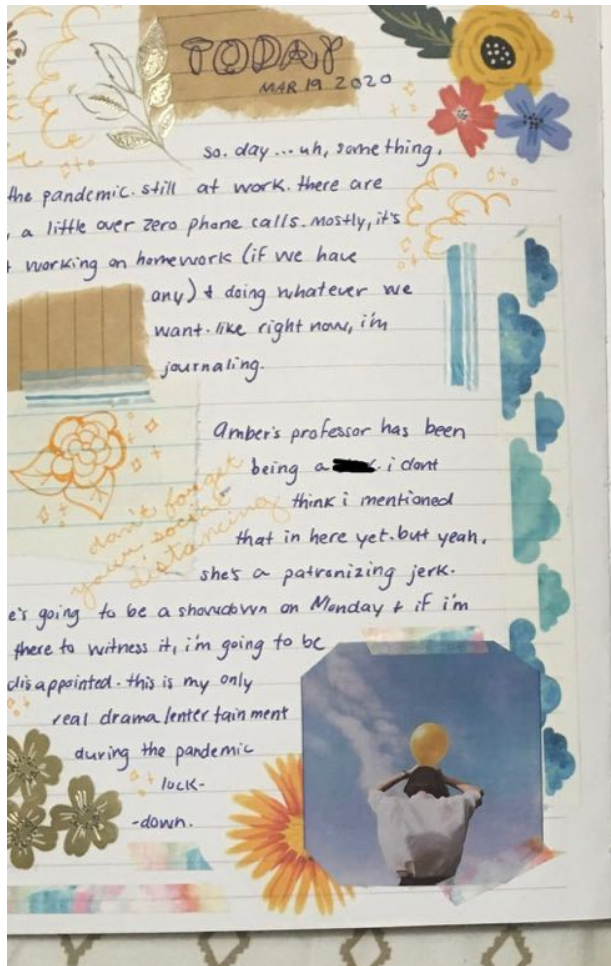 TODAY
MAR 19 2020
so. day... uh, something.
the pandemic. still at work. there are
a little over zero phone calls. mostly, it's
working on homework (if we have
any) & doing whatever we
want. like right now, i'm
journaling.
amber's professor has been
being a i dont
think i mentioned
that in here yet. but yeah.
she's a patronizing jerk.
e's going to be a showdown on Monday & if i'm
there to witness it, i'm going to be
disappointed. this is my only
real drama/entertainment
during the pandemic
lock-
-down.
don't forget
your social
distancing